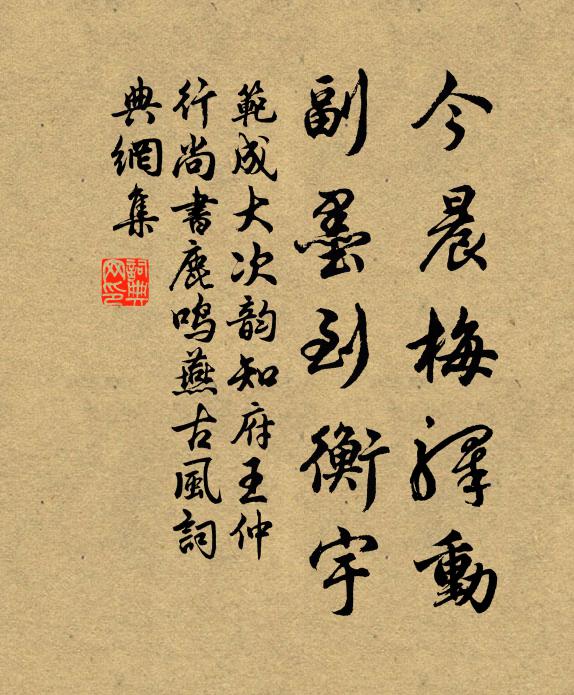 今晨梅驛動
副墨到衡宇
範成大次韵知府王仲
行尚書鹿鳴燕古風詞
典網集
詞典
网印